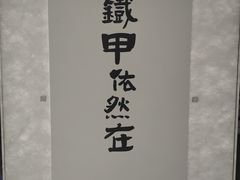 鐵甲依然在